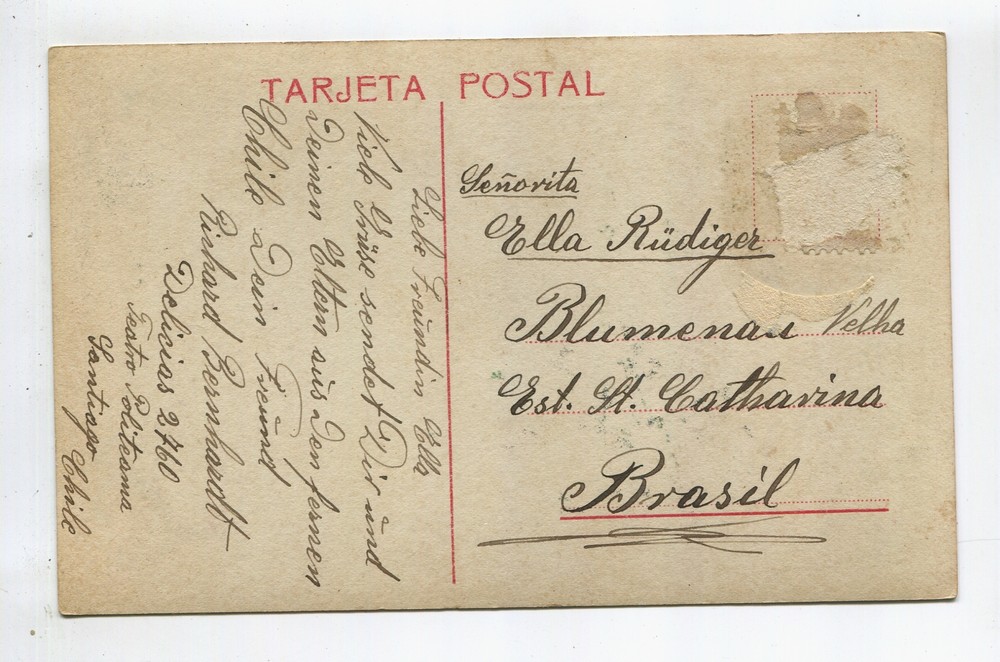 TARJETA POSTAL
Liebe Freundin Ella
Viele Grüse sendet Dir und
Deinen Eltern aus den fernen
Chile Dein Freund,
Richard Bernhardt
Delicias 2760
Teatro Politeama
Santiago Chile
Señorita
Ella Rüdiger
Blumenau Velha
Est. St. Catharina
Brasil